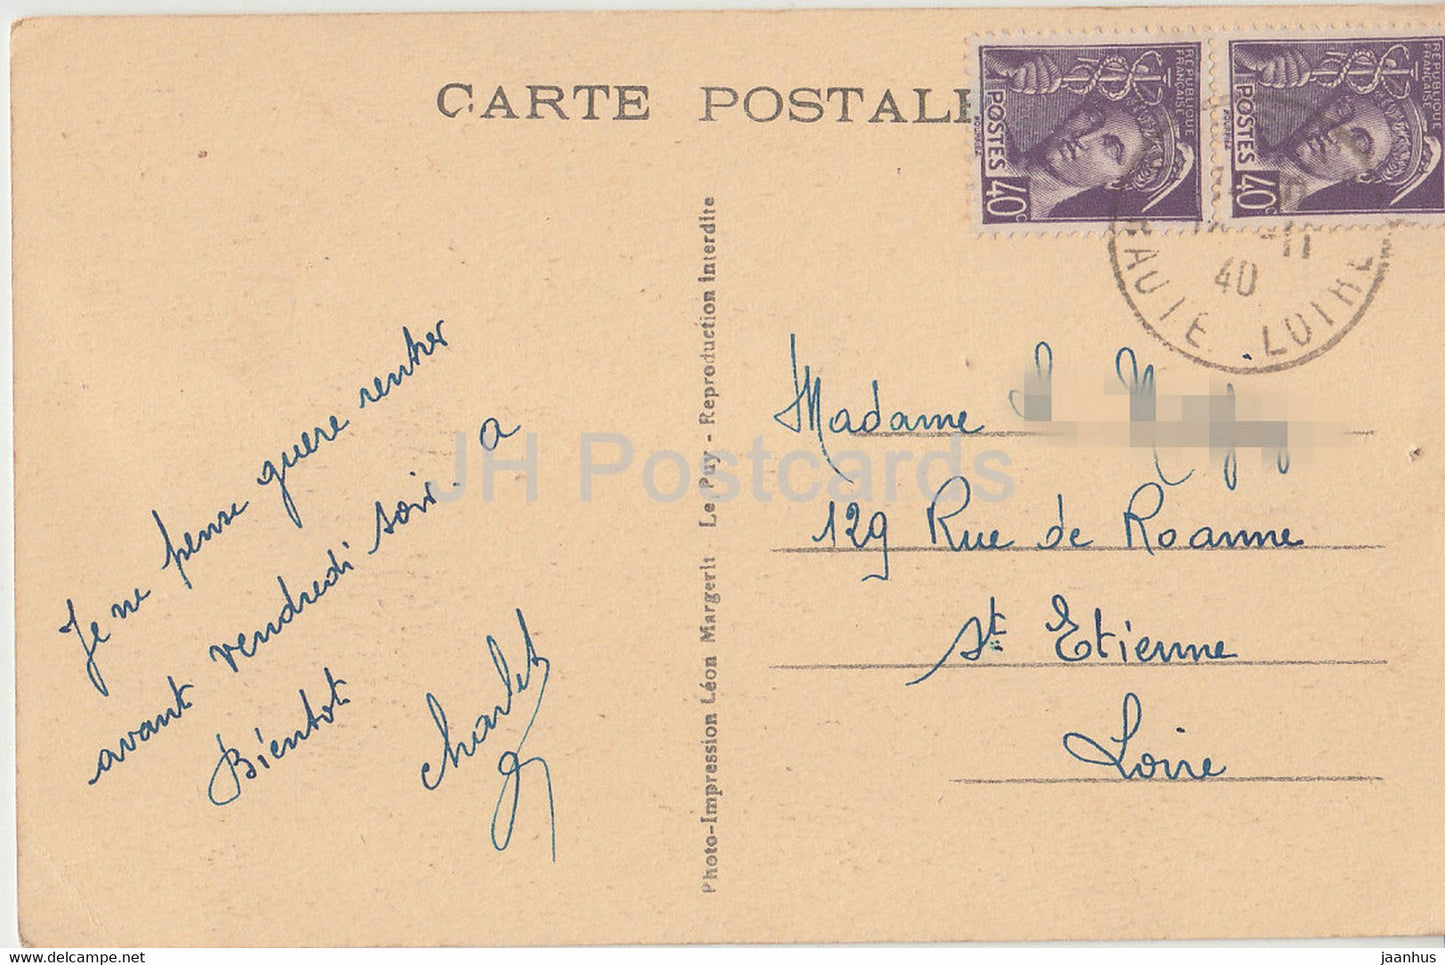 CARTE POSTALE
REPUBLIQUE
FRANÇAISE
POSTES
40c
REPUBLIQUE
FRANÇAISE
POSTES
40c
HAUTE LOIRE
40
Je ne pense guere rentrer
avant vendredi soir. a
Bientot
Charlet
Photo-Impression Léon Margerit - Le Puy - Reproduction interdite
Madame
129 Rue de Roanne
St Etienne
Loire
JH Postcards
jaanhus